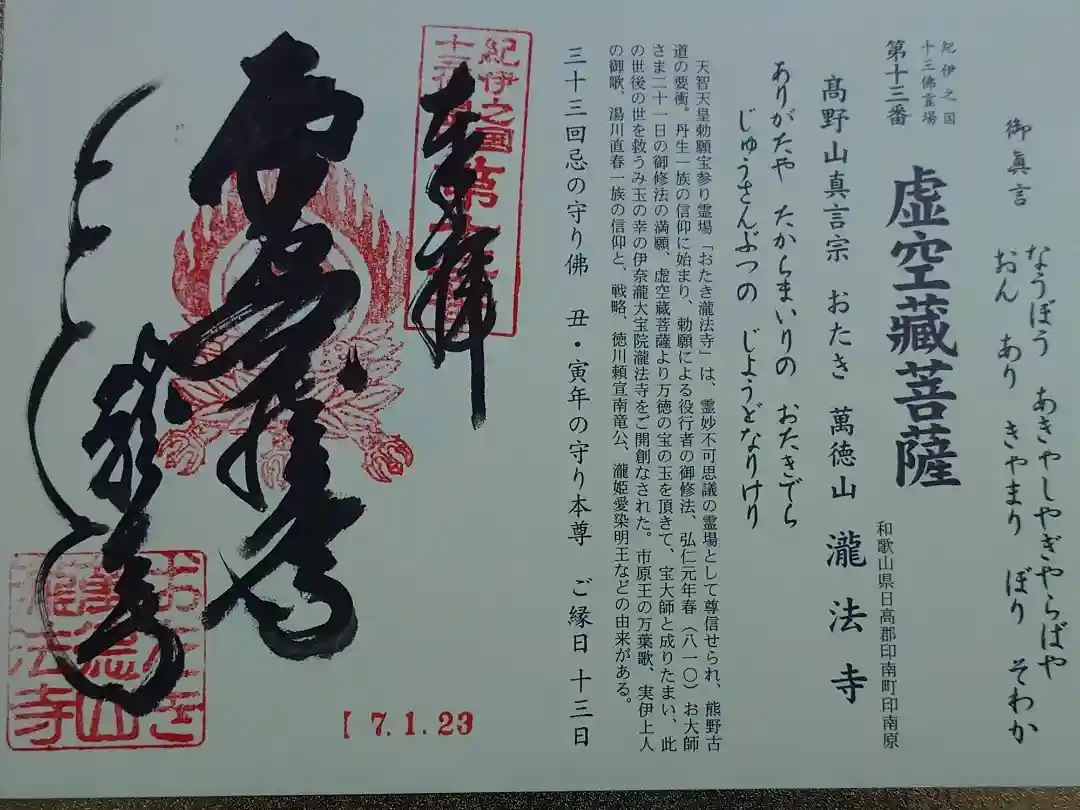 御眞言
なうぼう あきゃしゃぎゃらばや
おん あり きゃまり ぼり そわか
紀伊之国
十三佛霊場
第十三番
虚空藏菩薩
和歌山県日高郡印南町印南原
髙野山真言宗 おたき 萬徳山 瀧法寺
ありがたや たからまいりの おたきでら
じゅうさんぶつの じょうどなりけり
天智天皇勅願宝参り霊場「おたき瀧法寺」は、霊妙不可思議の霊場として尊信せられ、熊野古
道の要衝。丹生一族の信仰に始まり、勅願による役行者の御修法、弘仁元年春（八一〇）お大師
さま二十一日の御修法の満願、虚空蔵菩薩より万徳の宝の玉を頂きて、宝大師と成りたまい、此
の世後の世を救うみ玉の幸の伊奈瀧大宝院瀧法寺をご開創なされた。市原王の万葉歌、実伊上人
の御歌、湯川直春一族の信仰と、戦略、徳川頼宣南竜公、瀧姫愛染明王などの由来がある。
三十三回忌の守り佛 丑・寅年の守り本尊 ご縁日十三日
紀伊之国
奉拝
7.1.23
おたき
萬徳山
瀧法寺